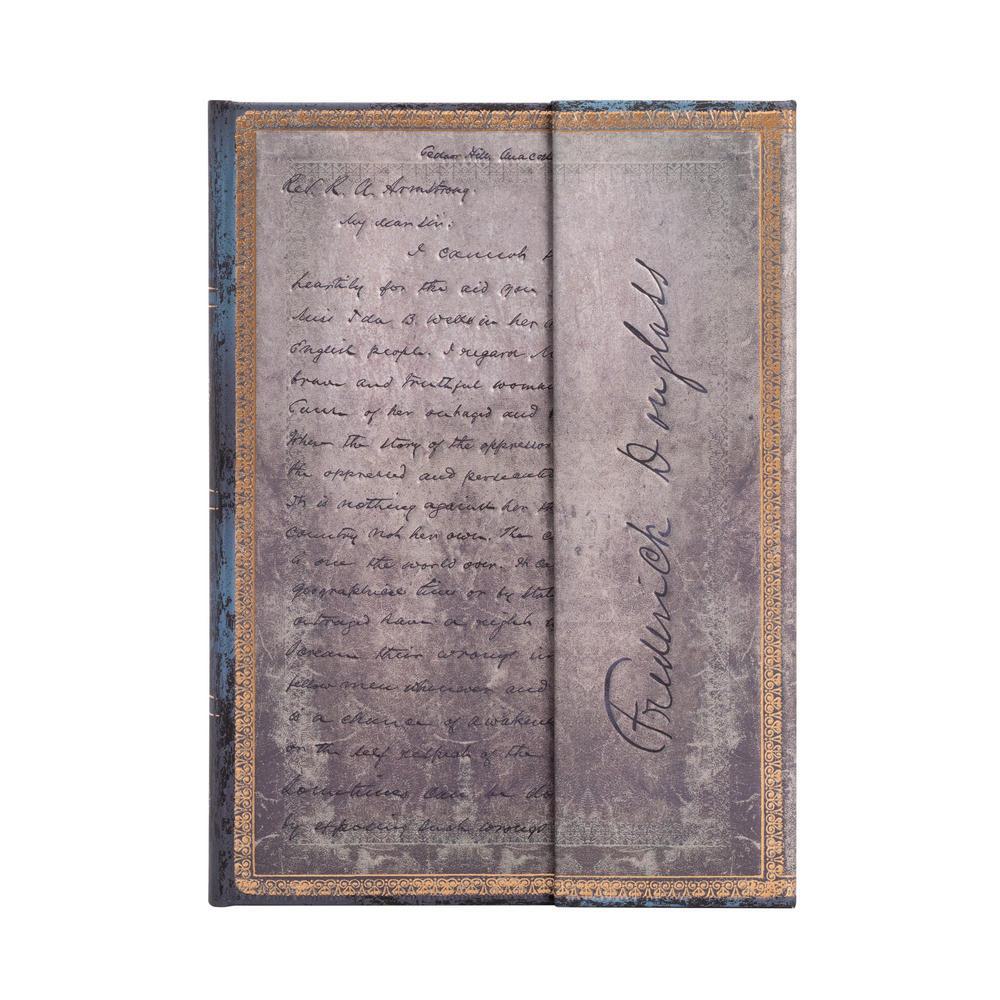 Cedar Hill Anacost
Rev. R. A. Armstrong.
My dear Sir:
I cannot
heartily for the aid you
Miss Ida B. Wells in her
English people. I regard
brave and truthful woman
Cause of her outraged and
When the story of the oppressor
the oppressed and persecuted
It is nothing against her
Country not her own. The
is one the world over. It
geographical lines or by
outraged have a right
scream their wrongs in
fellow men whenever and
is a chance of awakening
on the self respect of the
Sometimes can be do
by exposing such wrongs
Frederick Douglass